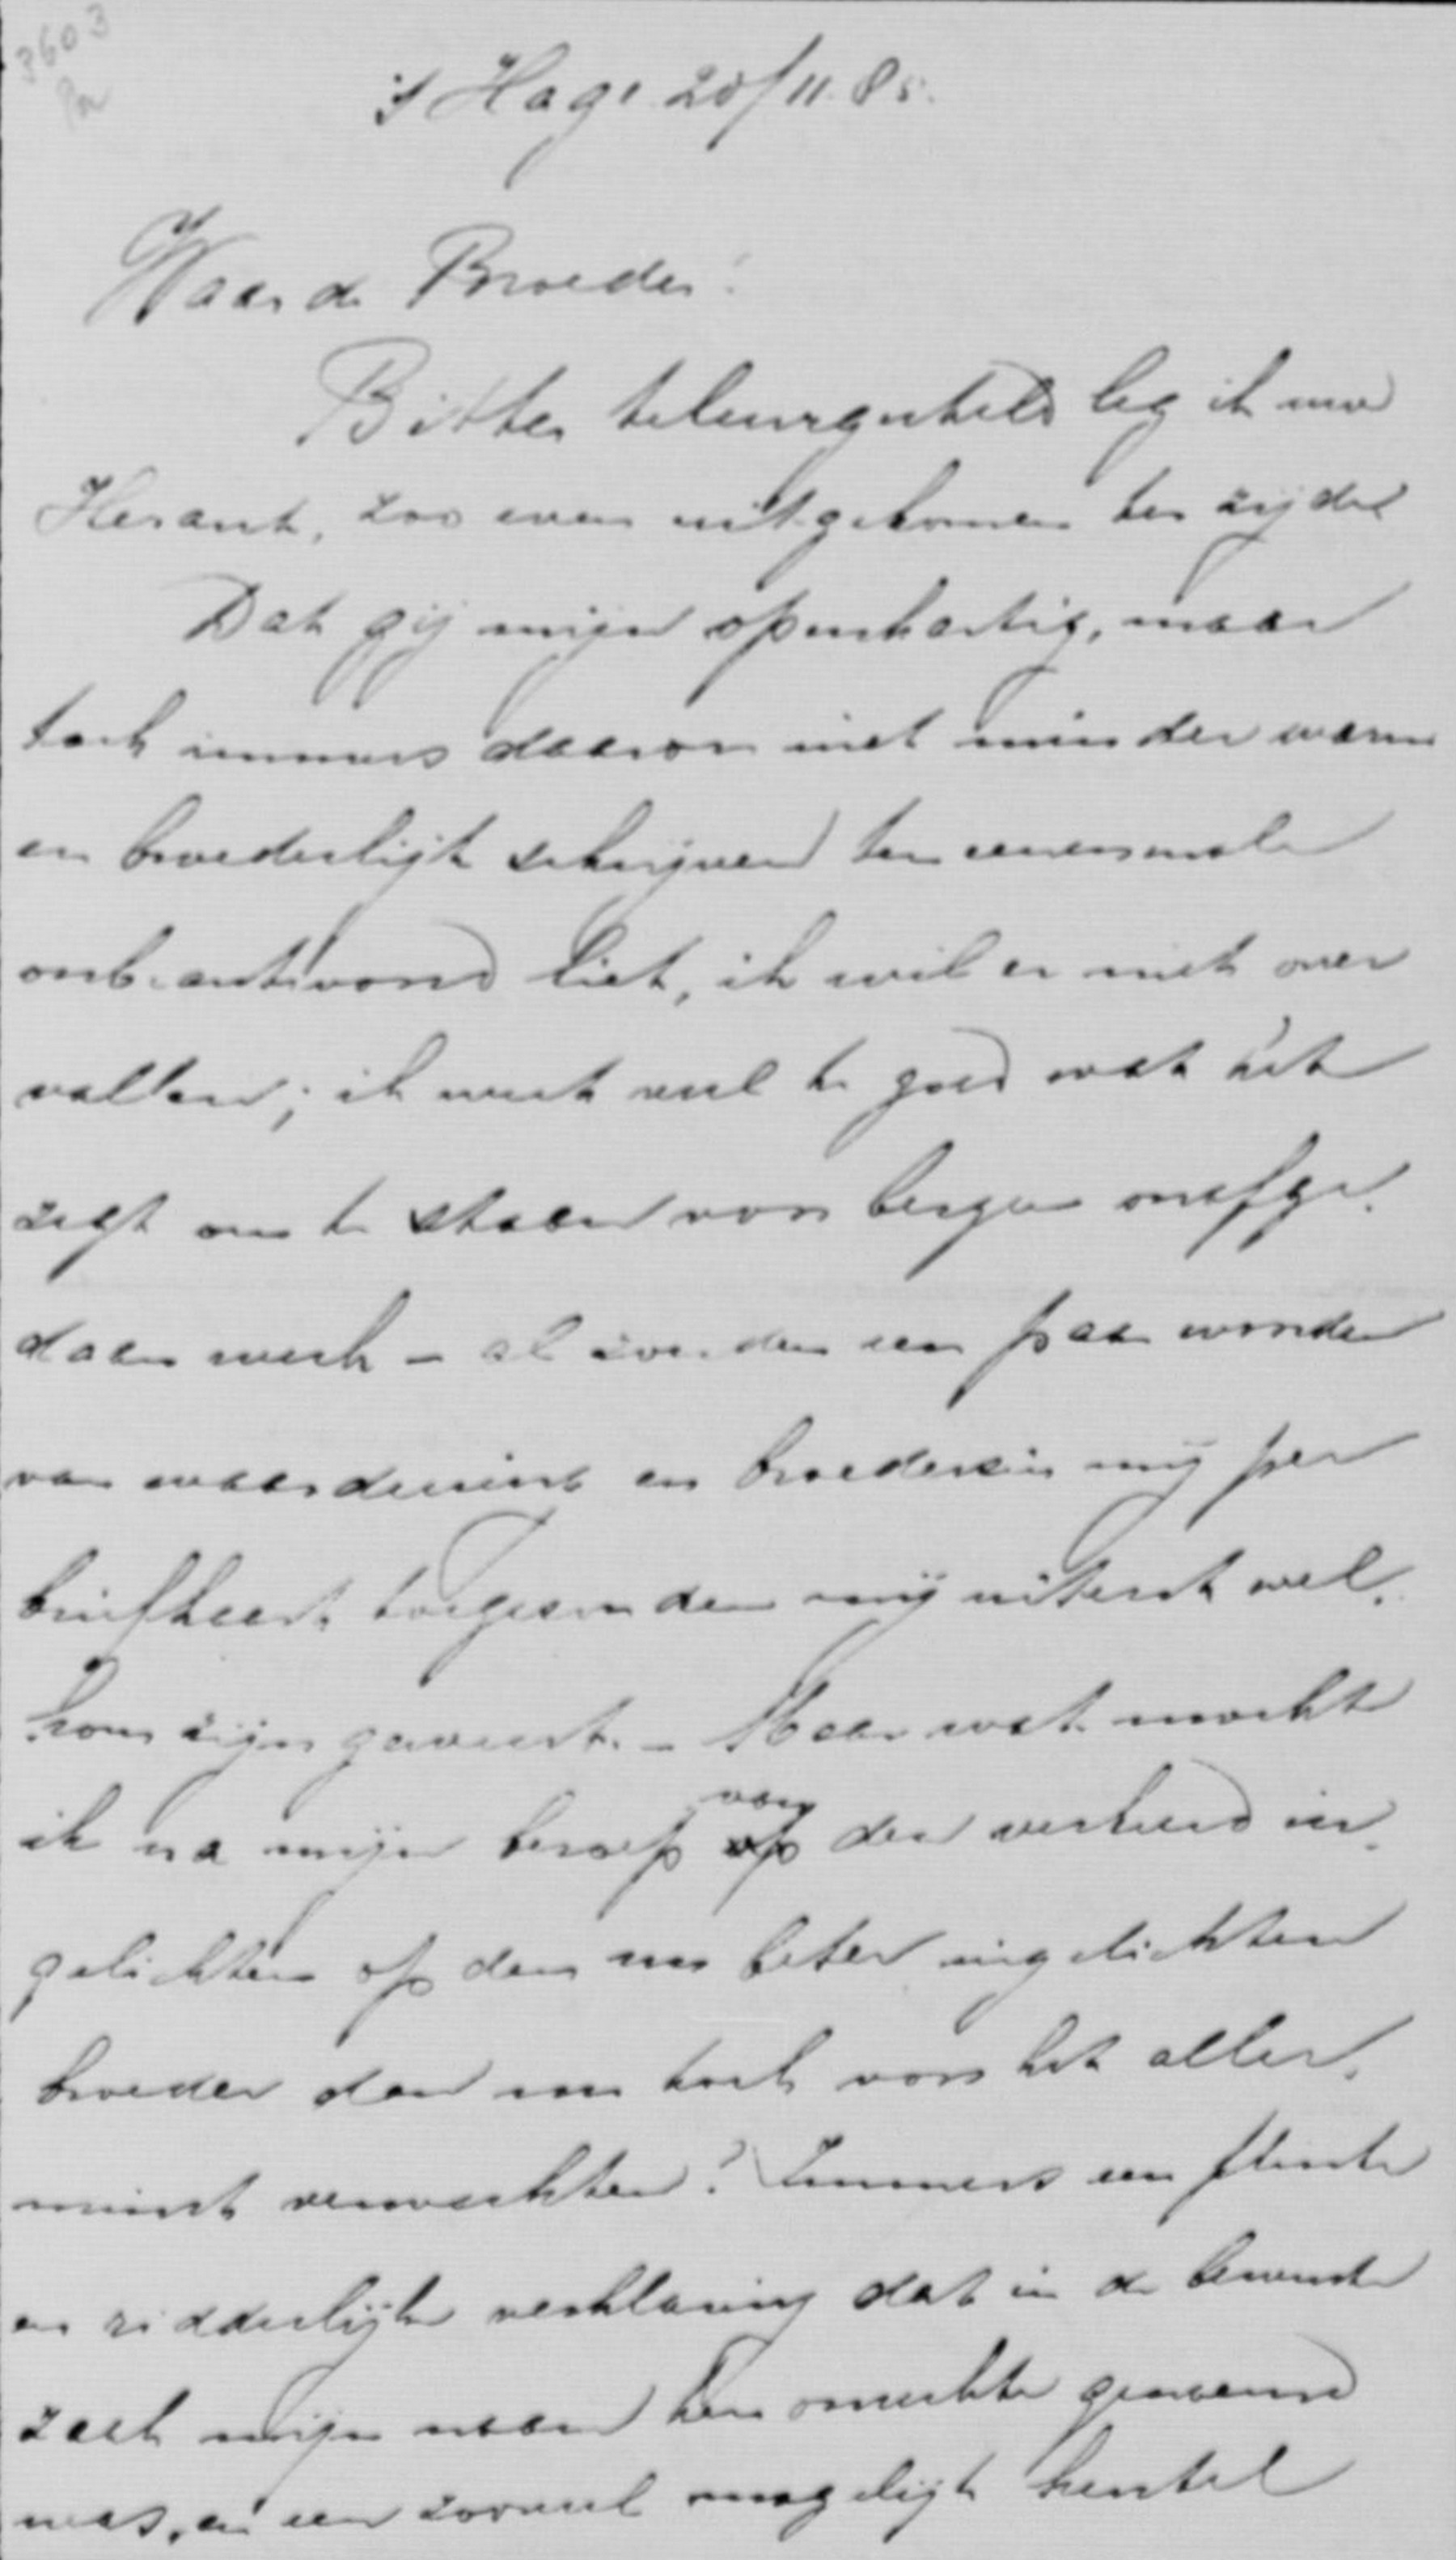 3603
's Hage 20/11.85.
Waarde Broeder!
Bitter teleurgesteld leg ik uw
Heraut, zoo even uitgekomen ter zijde.
Dat gij mijn openhartig, maar
toch immers daarom niet minder warm
en broederlijk schrijven ten eenenmale
onbeantwoord liet, ik wil er niet over
vallen; ik weet veel te goed wat het
zegt om te staan voor bergen onafge-
daan werk - al zouden een paar woorden
van waardeering en broederzin mij per
briefkaart toegezonden mij uiterst wel-
kom zijn geweest. - Maar wat mocht
ik na mijn beroep van op den verkeerd in-
gelichten op den nu beter ingelichten
broeder dan nu toch voor het aller-
minst verwachten? Immers een flinke
en ridderlijke verklaring dat in de bewuste
zaak mijn naam ten onrechte genoemd
was, en een zooveel mogelijk herstel